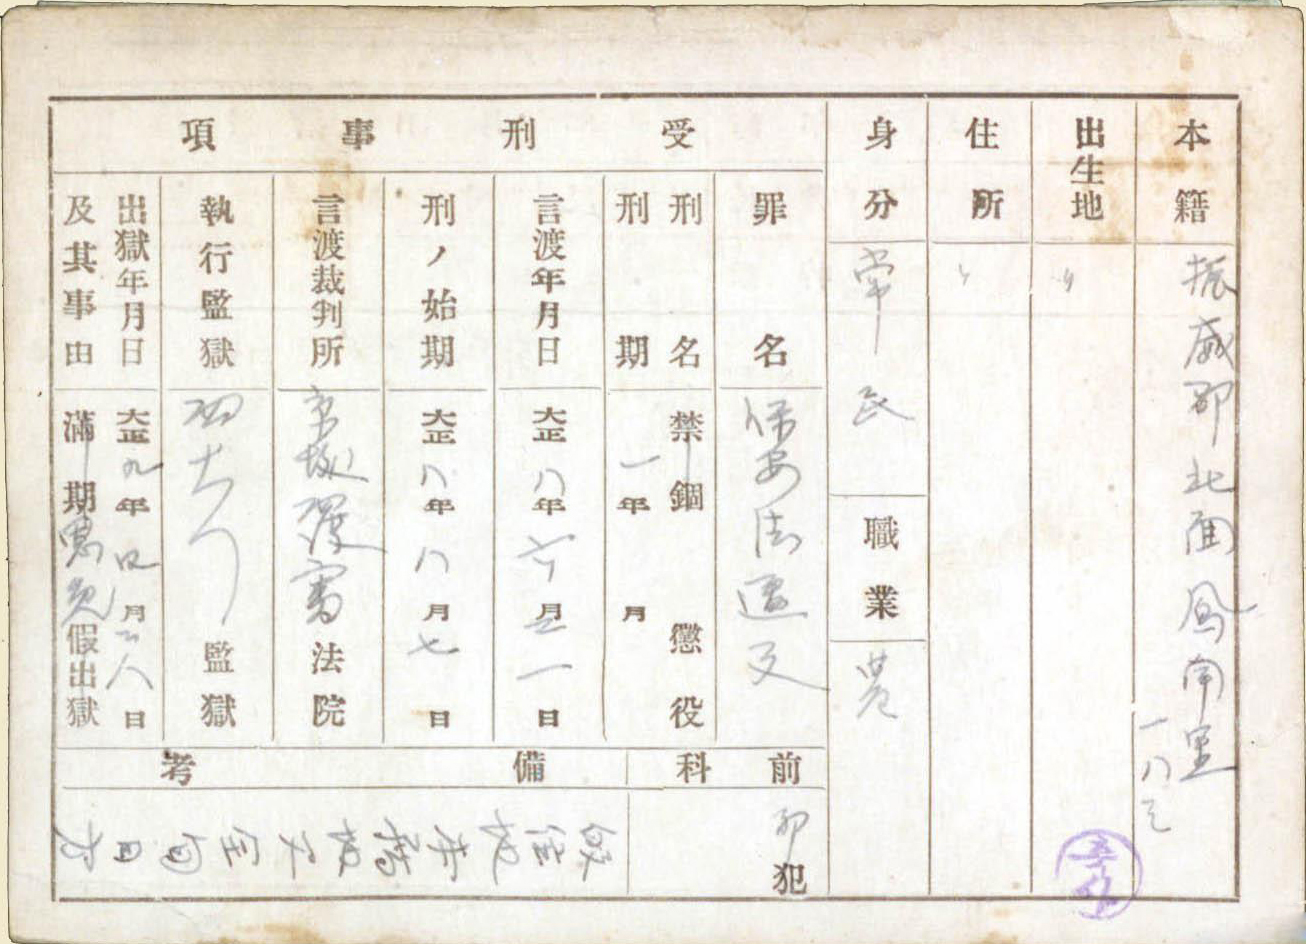 本籍
振威郡北面鳳南里
一八三
出生地
〃
住所
〃
身分
常民
職業
農
受刑事項
罪名
保安法違反
刑名
禁錮 懲役
刑期
一年 月
言渡年月日
大正八年 月 一日
刑ノ始期
大正八年八月七日
言渡裁判所
京城覆審法院
執行監獄
西大門監獄
出獄年月日
大正九年四月二八日
及其事由
満期 恩免 假出獄
前科
初犯
備考